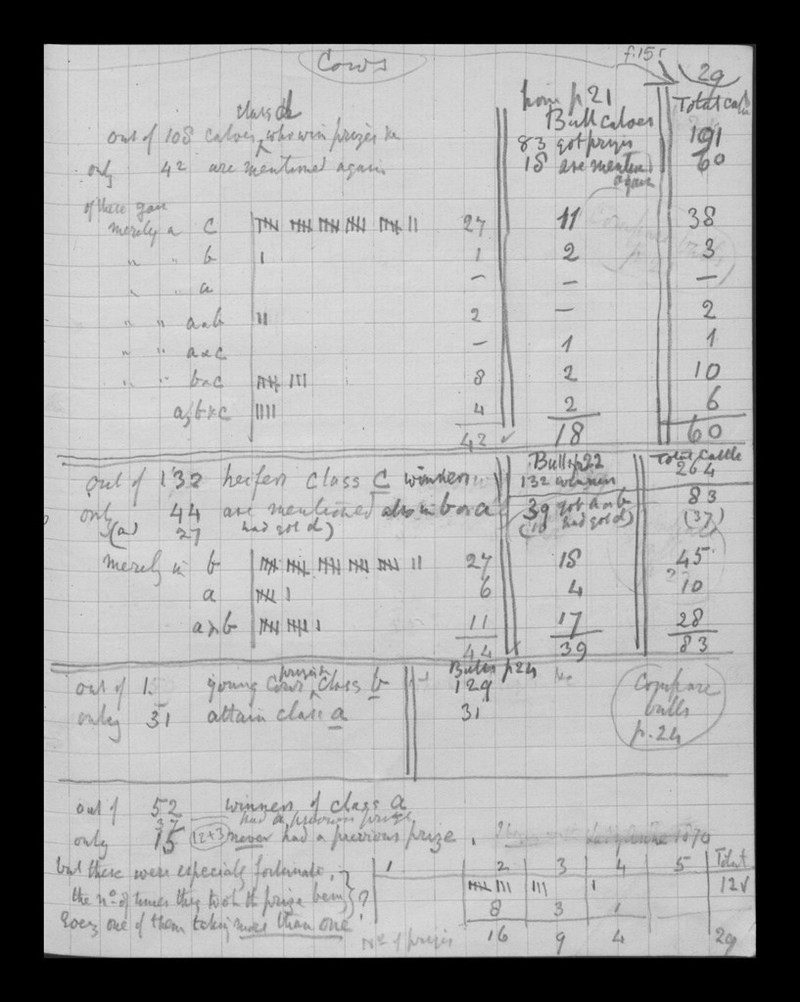 Cows
f.15r
29
class d
out of 108 calves, who win prizes in
only 42 are mentioned again
from p 21
Bull calves
83 got prizes
18 are mentioned
again
Total
191
60
of these gave
merely a c 27 11 38
" " b 1 2 3
" " a – – –
" " a & b 2 – 2
" " a & c – 1 1
" " b & c 8 2 10
a, b & c 4 2 6
42 18 60
out of 132 heifers class C winners
only 44 are mentioned also in b or a
(a) 27 had got d)
Bulls p22
132 winners
39 got a or b
had got d)
Total Cattle
264
83
(37)
merely in b 27 18 45
a 6 4 10
a & b 11 17 28
44 39 83
out of young Cows Class b
only 31 attain class a
Bulls p24
129
31
Compare
bulls
p. 24
out of 52 winners of class a
37 had a previous prize,
only 15 (12+3) never had a previous prize.
but these were especially fortunate,
the no. of times they took the prize being ?
Every one of them taking more than one
1 2 3 4 5 Total
12
8 3 1
No. of prizes 16 9 4 29